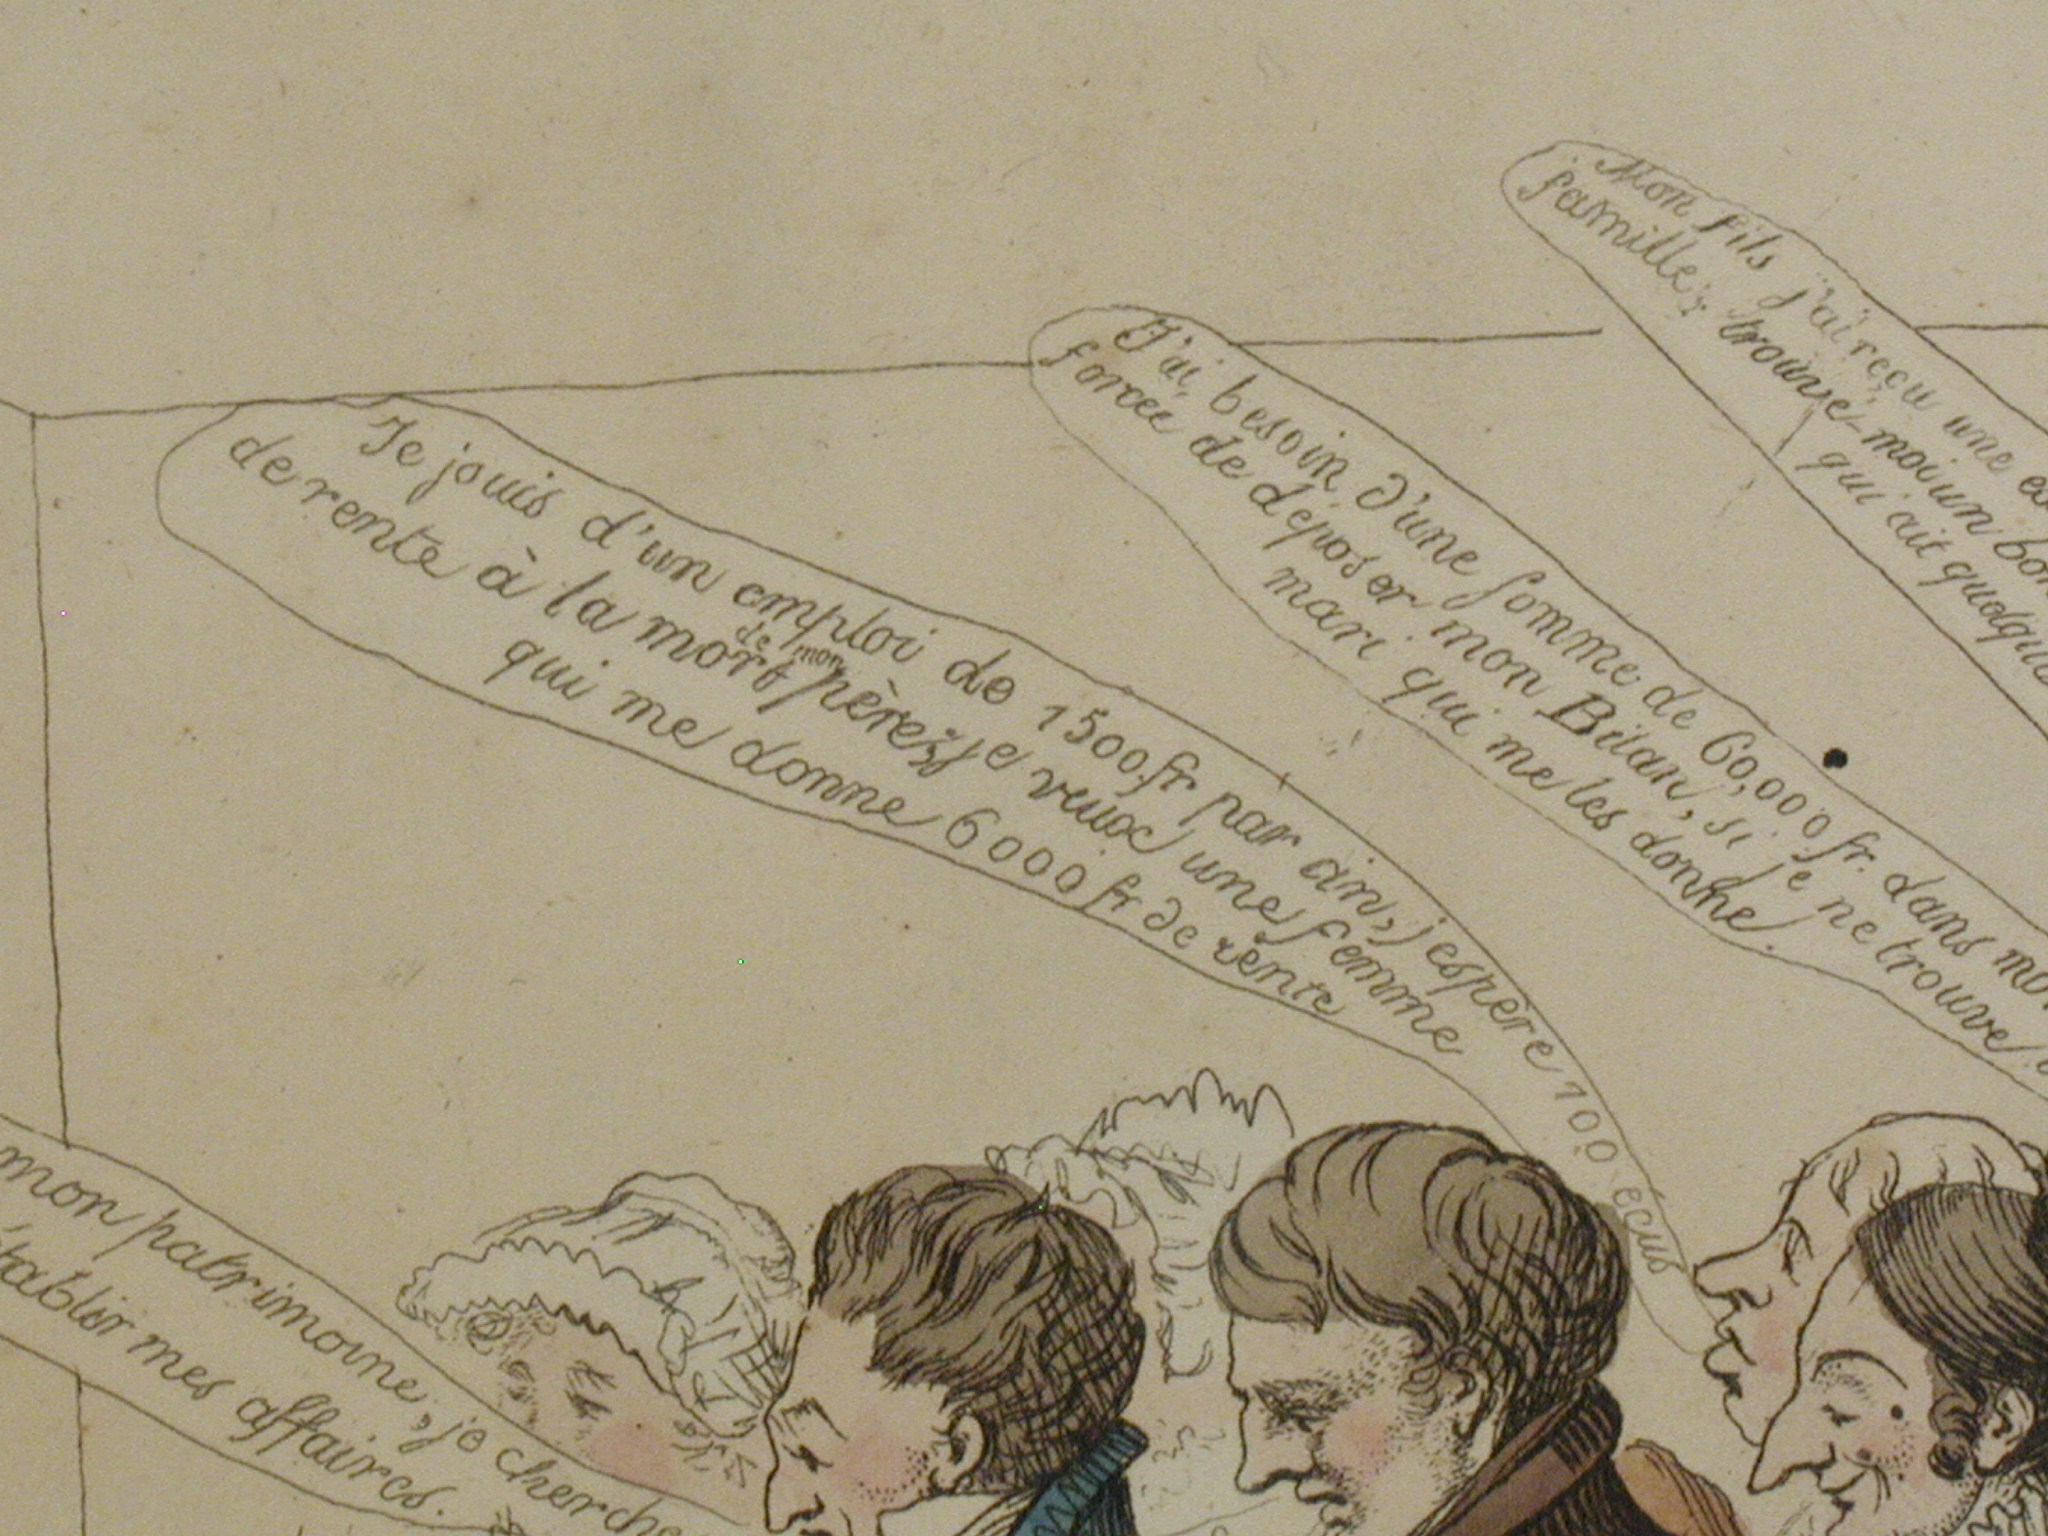 Je jouis d'un emploi de 1500 fr. par an, j'espère 100 écus
de rente à la mort de mon père; je veux une femme
qui me donne 6000 fr de rente
J'ai besoin d'une somme de 60,000 fr. dans mo
forcée de déposer mon Bilan, si je ne trouve
mari qui me les donne.
Mon fils j'ai reçu une
famille; trouve-moi un bon
qui ait quelque
mon patrimoine, je cherche
établir mes affaires.